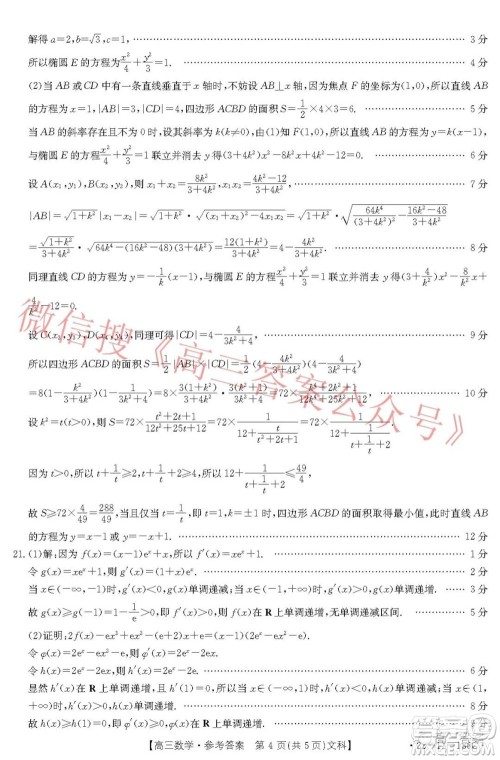 解得 a=2,b=√3,c=1, …… 3分
所以椭圆 E 的方程为x²/4+y²/3=1. …… 4分
(2)当 AB 或 CD 中有一条直线垂直于 x 轴时,不妨设 AB⊥x 轴,因为焦点 F 的坐标为(1,0),所以直线 AB
的方程为 x=1,|AB|=3,|CD|=4,四边形 ACBD 的面积 S=1/2×4×3=6. …… 5分
当 AB 的斜率存在且不为 0 时,设其斜率为 k(k≠0),由 F(1,0),得直线 AB 的方程为 y=k(x-1),
与椭圆 E 的方程x²/4+y²/3=1 联立并消去 y 得(3+4k²)x²-8k²x+4k²-12=0. …… 6分
设 A(x₁,y₁),B(x₂,y₂),则 x₁+x₂=8k²/(3+4k²),x₁x₂=(4k²-12)/(3+4k²). …… 7分
|AB|=√(1+k²)|x₁-x₂|=√(1+k²)·√((x₁+x₂)²-4x₁x₂)=√(1+k²)·√(64k⁴/(3+4k²)²-(16k²-48)/(3+4k²))
=√(1+k²)/(3+4k²)·√(64k⁴-(16k²-48)(3+4k²))=12(1+k²)/(3+4k²)=4-4k²/(3+4k²). …… 8分
同理直线 CD 的方程为 y=-1/k(x-1),与椭圆 E 的方程x²/4+y²/3=1 联立并消去 y 得(3+4/k²)x²-8/k²x+
4/k²-12=0.
设 C(x₃,y₃),D(x₄,y₄),同理可得|CD|=4-4/(3k²+4). …… 9分
所以四边形 ACBD 的面积 S=1/2|AB|·|CD|=1/2(4-4k²/(3+4k²))(4-4/(3k²+4))
=8(1-k²/(3+4k²))(1-1/(3k²+4))=8×3(1+k²)/(3+4k²)×3(k²+1)/(3k²+4)=72×(k⁴+2k²+1)/(12k⁴+25k²+12), …… 10分
设 k²=t(t>0),则 S=72×(t²+2t+1)/(12t²+25t+12)=72×1/(12+t/(t²+2t+1))=72×1/(12+1/(t+1/t+2)).
因为 t>0,所以 t+1/t≥2,t+1/t+2≥4,所以 12+1/(t+1/t+2)≤49/4,
故 S≥72×4/49=288/49,当且仅当 t=1/t,即 t=1,k=±1 时,四边形 ACBD 的面积取得最小值,此时直线 AB
的方程为 x±y-1=0. …… 12分
21.(1)解:因为 f(x)=(x-1)eˣ+x,所以 f′(x)=xeˣ+1. …… 1分
令 g(x)=xeˣ+1,则 g′(x)=(x+1)eˣ. …… 2分
当 x∈(-∞,-1)时,g′(x)<0,g(x)单调递减;当 x∈(-1,+∞)时,g′(x)>0,g(x)单调递增. …… 3分
故 g(x)≥g(-1)=1-1/e>0,即 f′(x)>0,f(x)在 R 上单调递增,无单调递减区间. …… 5分
(2)证明:2f(x)-ex³+ex²-(e+2)x+e=(x-1)(2eˣ-ex²-e).
令φ(x)=2eˣ-ex²-e,则φ′(x)=2eˣ-2ex.
令 h(x)=2eˣ-2ex,则 h′(x)=2eˣ-2e. …… 6分
【高三数学·参考答案 第 4 页(共 5 页)文科】
微信搜《高三答案公众号》